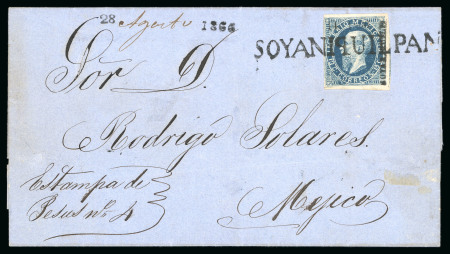 28 Agosto 1866
SOYANIQUILPAN
Sor D.
Rodrigo Solares.
Estampa de
Jesus no. 4
Mejico